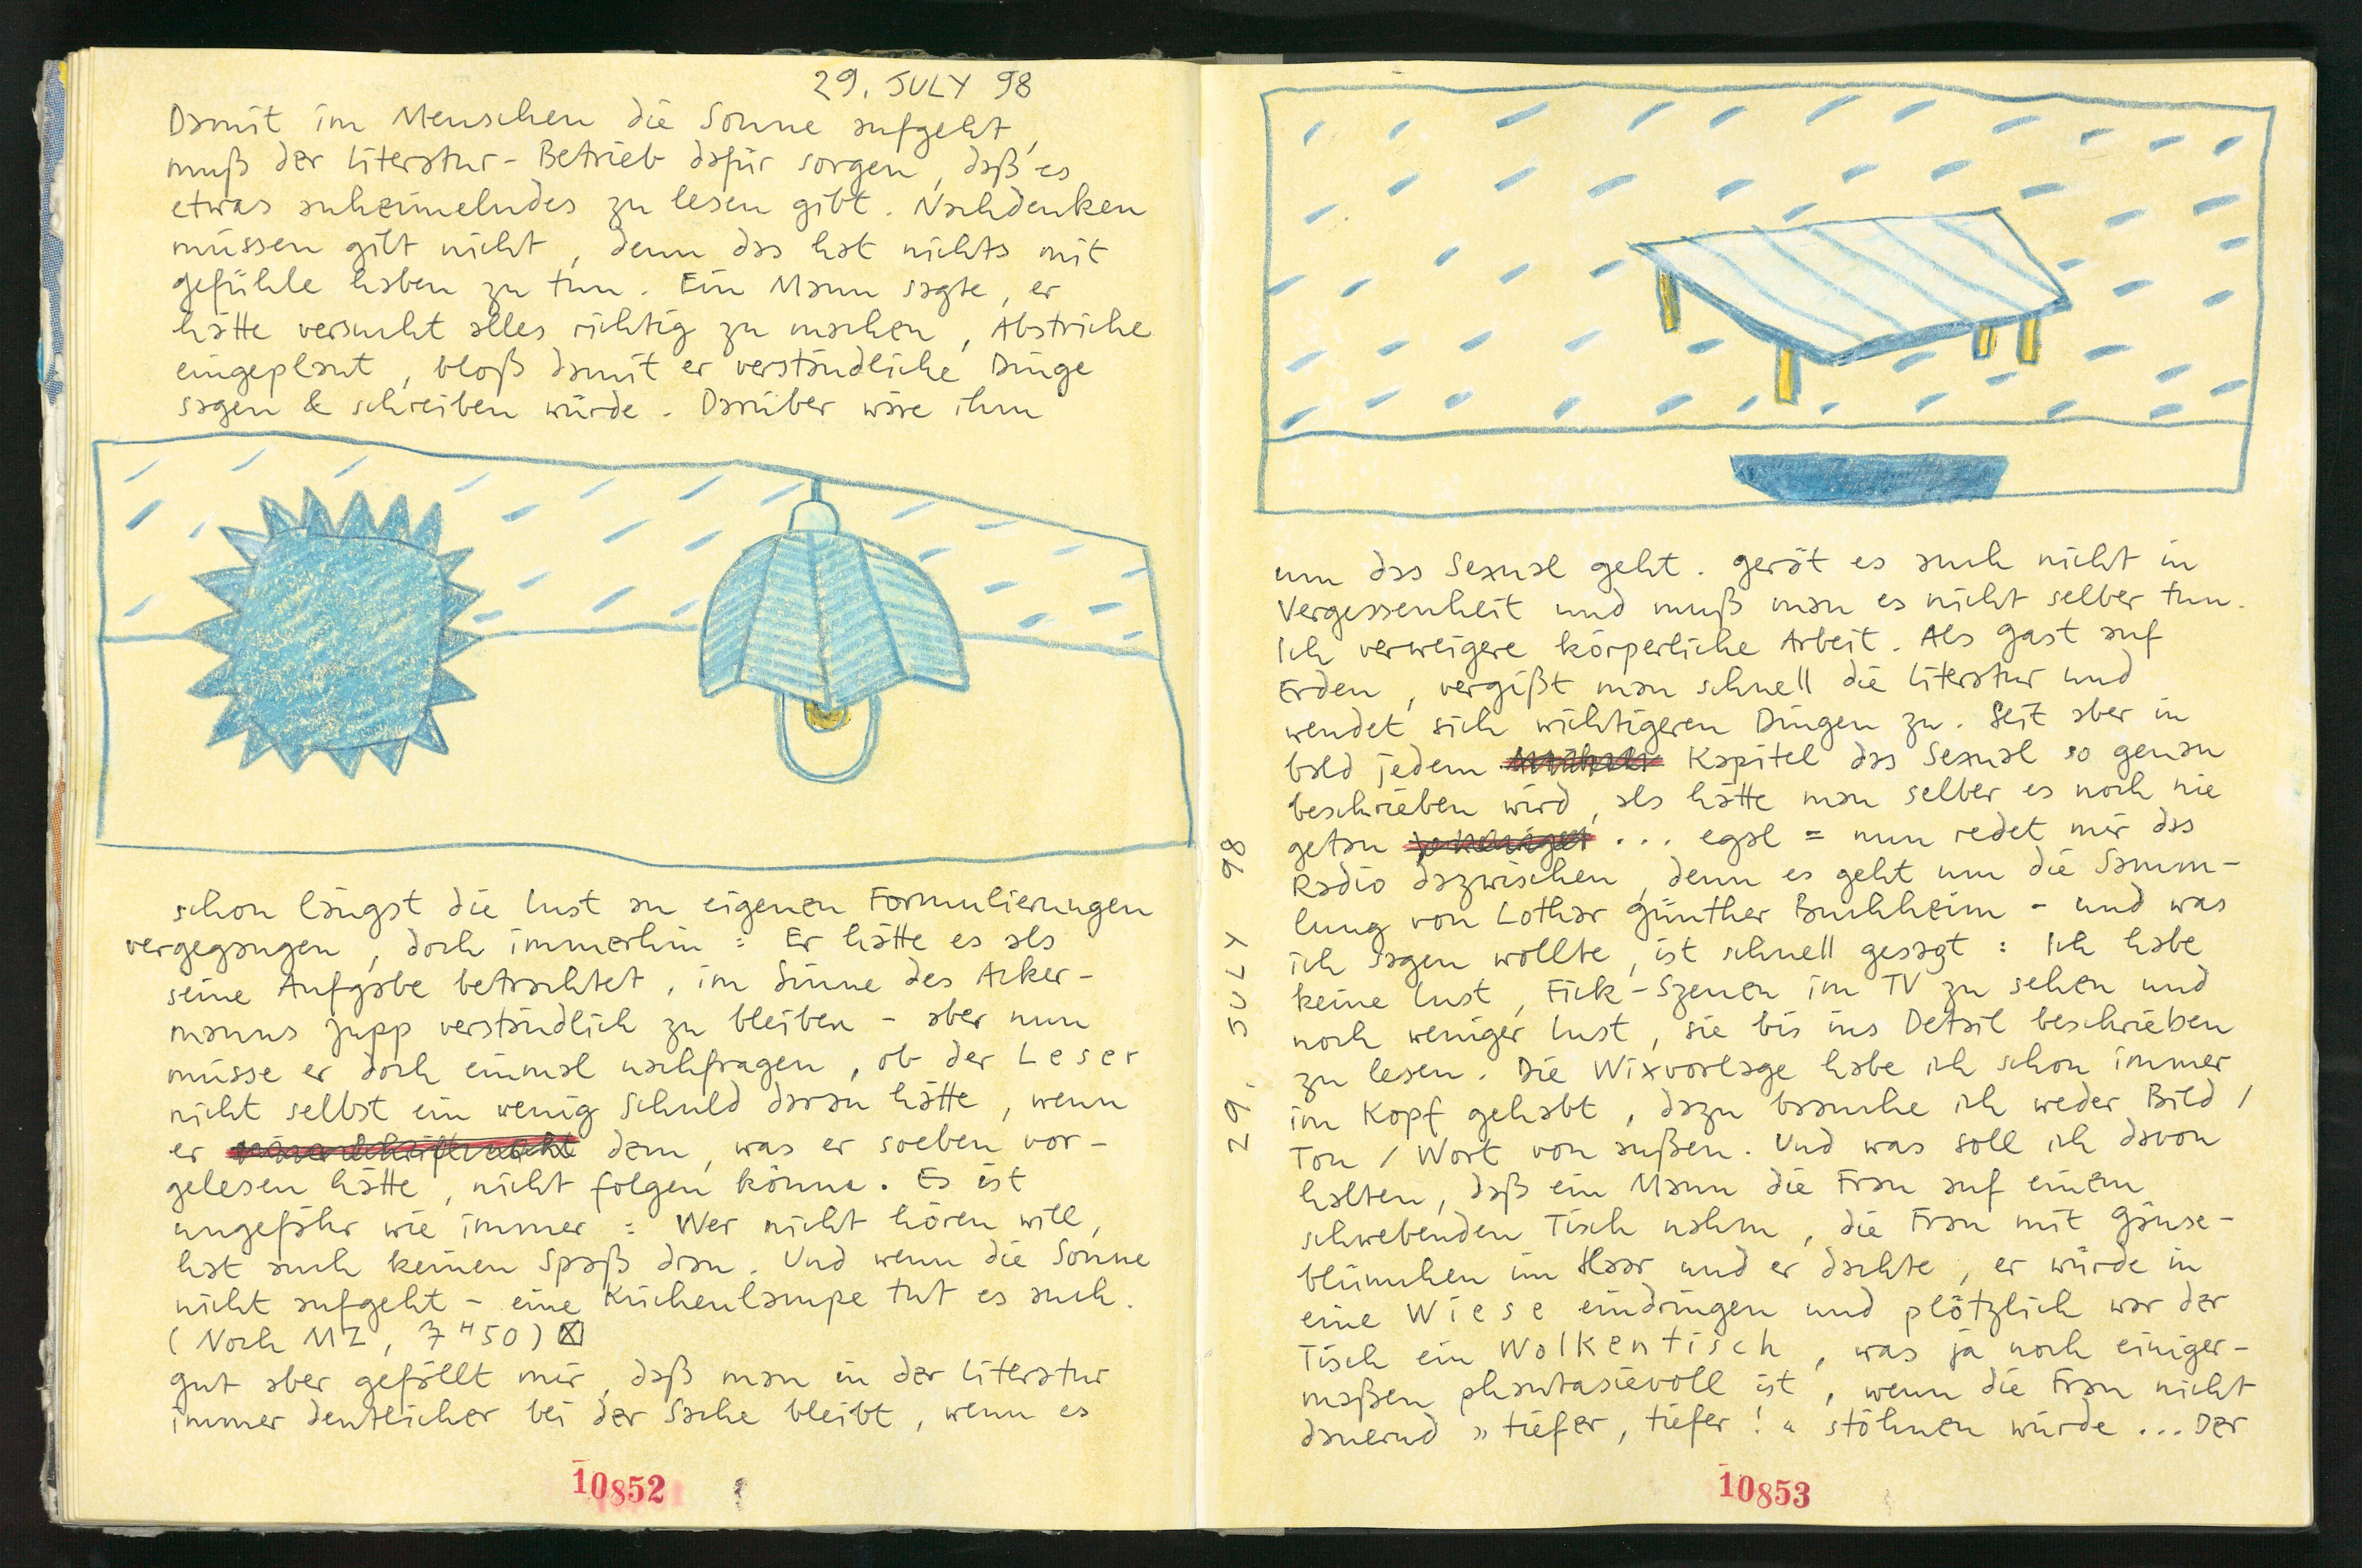 29. JULY 98
Damit im Menschen die Sonne aufgeht,
muß der Literatur-Betrieb dafür sorgen, daß es
etwas anheimelndes zu lesen gibt. Nachdenken
müssen gilt nicht, denn das hat nichts mit
gefühle haben zu tun. Ein Mann sagte, er
hätte versucht alles richtig zu machen, Abstriche
eingeplant, bloß damit er verständliche Dinge
sagen & schreiben würde. Darüber wäre ihm
schon längst die Lust an eigenen Formulierungen
vergegangen, doch immerhin: Er hätte es als
seine Aufgabe betrachtet, im Sinne des Acker-
manns Jupp verständlich zu bleiben - aber nun
müsse er doch einmal nachfragen, ob der Leser
nicht selbst ein wenig Schuld daran hätte, wenn
er dem, was er soeben vor-
gelesen hätte, nicht folgen könne. Es ist
ungefähr wie immer: Wer nicht hören will,
hat auch keinen Spaß dran. Und wenn die Sonne
nicht aufgeht - eine Küchenlampe tut es auch.
(Nach MZ, 7 H 50) ☒
gut aber gefällt mir, daß man in der Literatur
immer deutlicher bei der Sache bleibt, wenn es
10852
um das Sexual geht. gerät es auch nicht in
Vergessenheit und muß man es nicht selber tun.
Ich verweigere körperliche Arbeit. Als gast auf
Erden, vergißt man schnell die Literatur und
wendet sich wichtigeren Dingen zu. Seit aber in
bald jedem Kapitel das Sexual so genau
beschrieben wird, als hätte man selber es noch nie
getan ... egal = nun redet mir das
Radio dazwischen, denn es geht um die Samm-
lung von Lothar günther Buchheim - und was
ich sagen wollte, ist schnell gesagt: Ich habe
keine Lust, Fick-Szenen im TV zu sehen und
noch weniger Lust, sie bis ins Detail beschrieben
zu lesen. Die Wixvorlage habe ich schon immer
im Kopf gehabt, dazu brauche ich weder Bild /
Ton / Wort von außen. Und was soll ich davon
halten, daß ein Mann die Frau auf einem
schwebenden Tisch nahm, die Frau mit gänse-
blümchen im Haar und er dachte, er würde in
eine Wiese eindringen und plötzlich war der
Tisch ein Wolkentisch, was ja noch einiger-
maßen phantasievoll ist, wenn die Frau nicht
dauernd »tiefer, tiefer!« stöhnen würde ... Der
29. JULY 98
10853